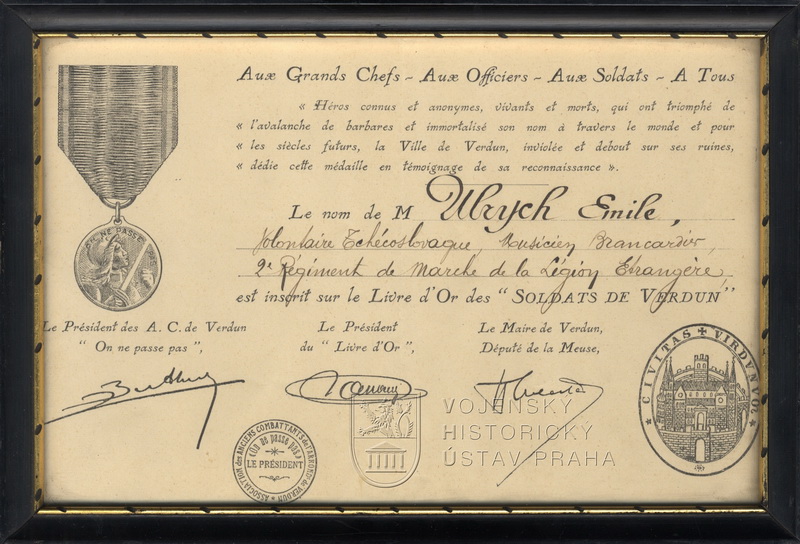 Aux Grands Chefs - Aux Officiers - Aux Soldats - A Tous
« Héros connus et anonymes, vivants et morts, qui ont triomphé de
« l'avalanche de barbares et immortalisé son nom à travers le monde et pour
« les siècles futurs, la Ville de Verdun, inviolée et debout sur ses ruines,
« dédie cette médaille en témoignage de sa reconnaissance ».
ON NE PASSE PAS
Le nom de M Ulrych Emile,
Volontaire Tchécoslovaque, Musicien Brancardier,
2e Régiment de Marche de la Légion Etrangère,
est inscrit sur le Livre d'Or des "SOLDATS DE VERDUN"
Le Président des A. C. de Verdun
"On ne passe pas",
Le Président
du "Livre d'Or",
Le Maire de Verdun,
Député de la Meuse,
CIVITAS VIRDVNVM
ASSOCIATION des ANCIENS COMBATTANTS de l'ARROND. de VERDUN
"On ne passe pas"
LE PRÉSIDENT
VOJENSKÝ
HISTORICKÝ
ÚSTAV PRAHA